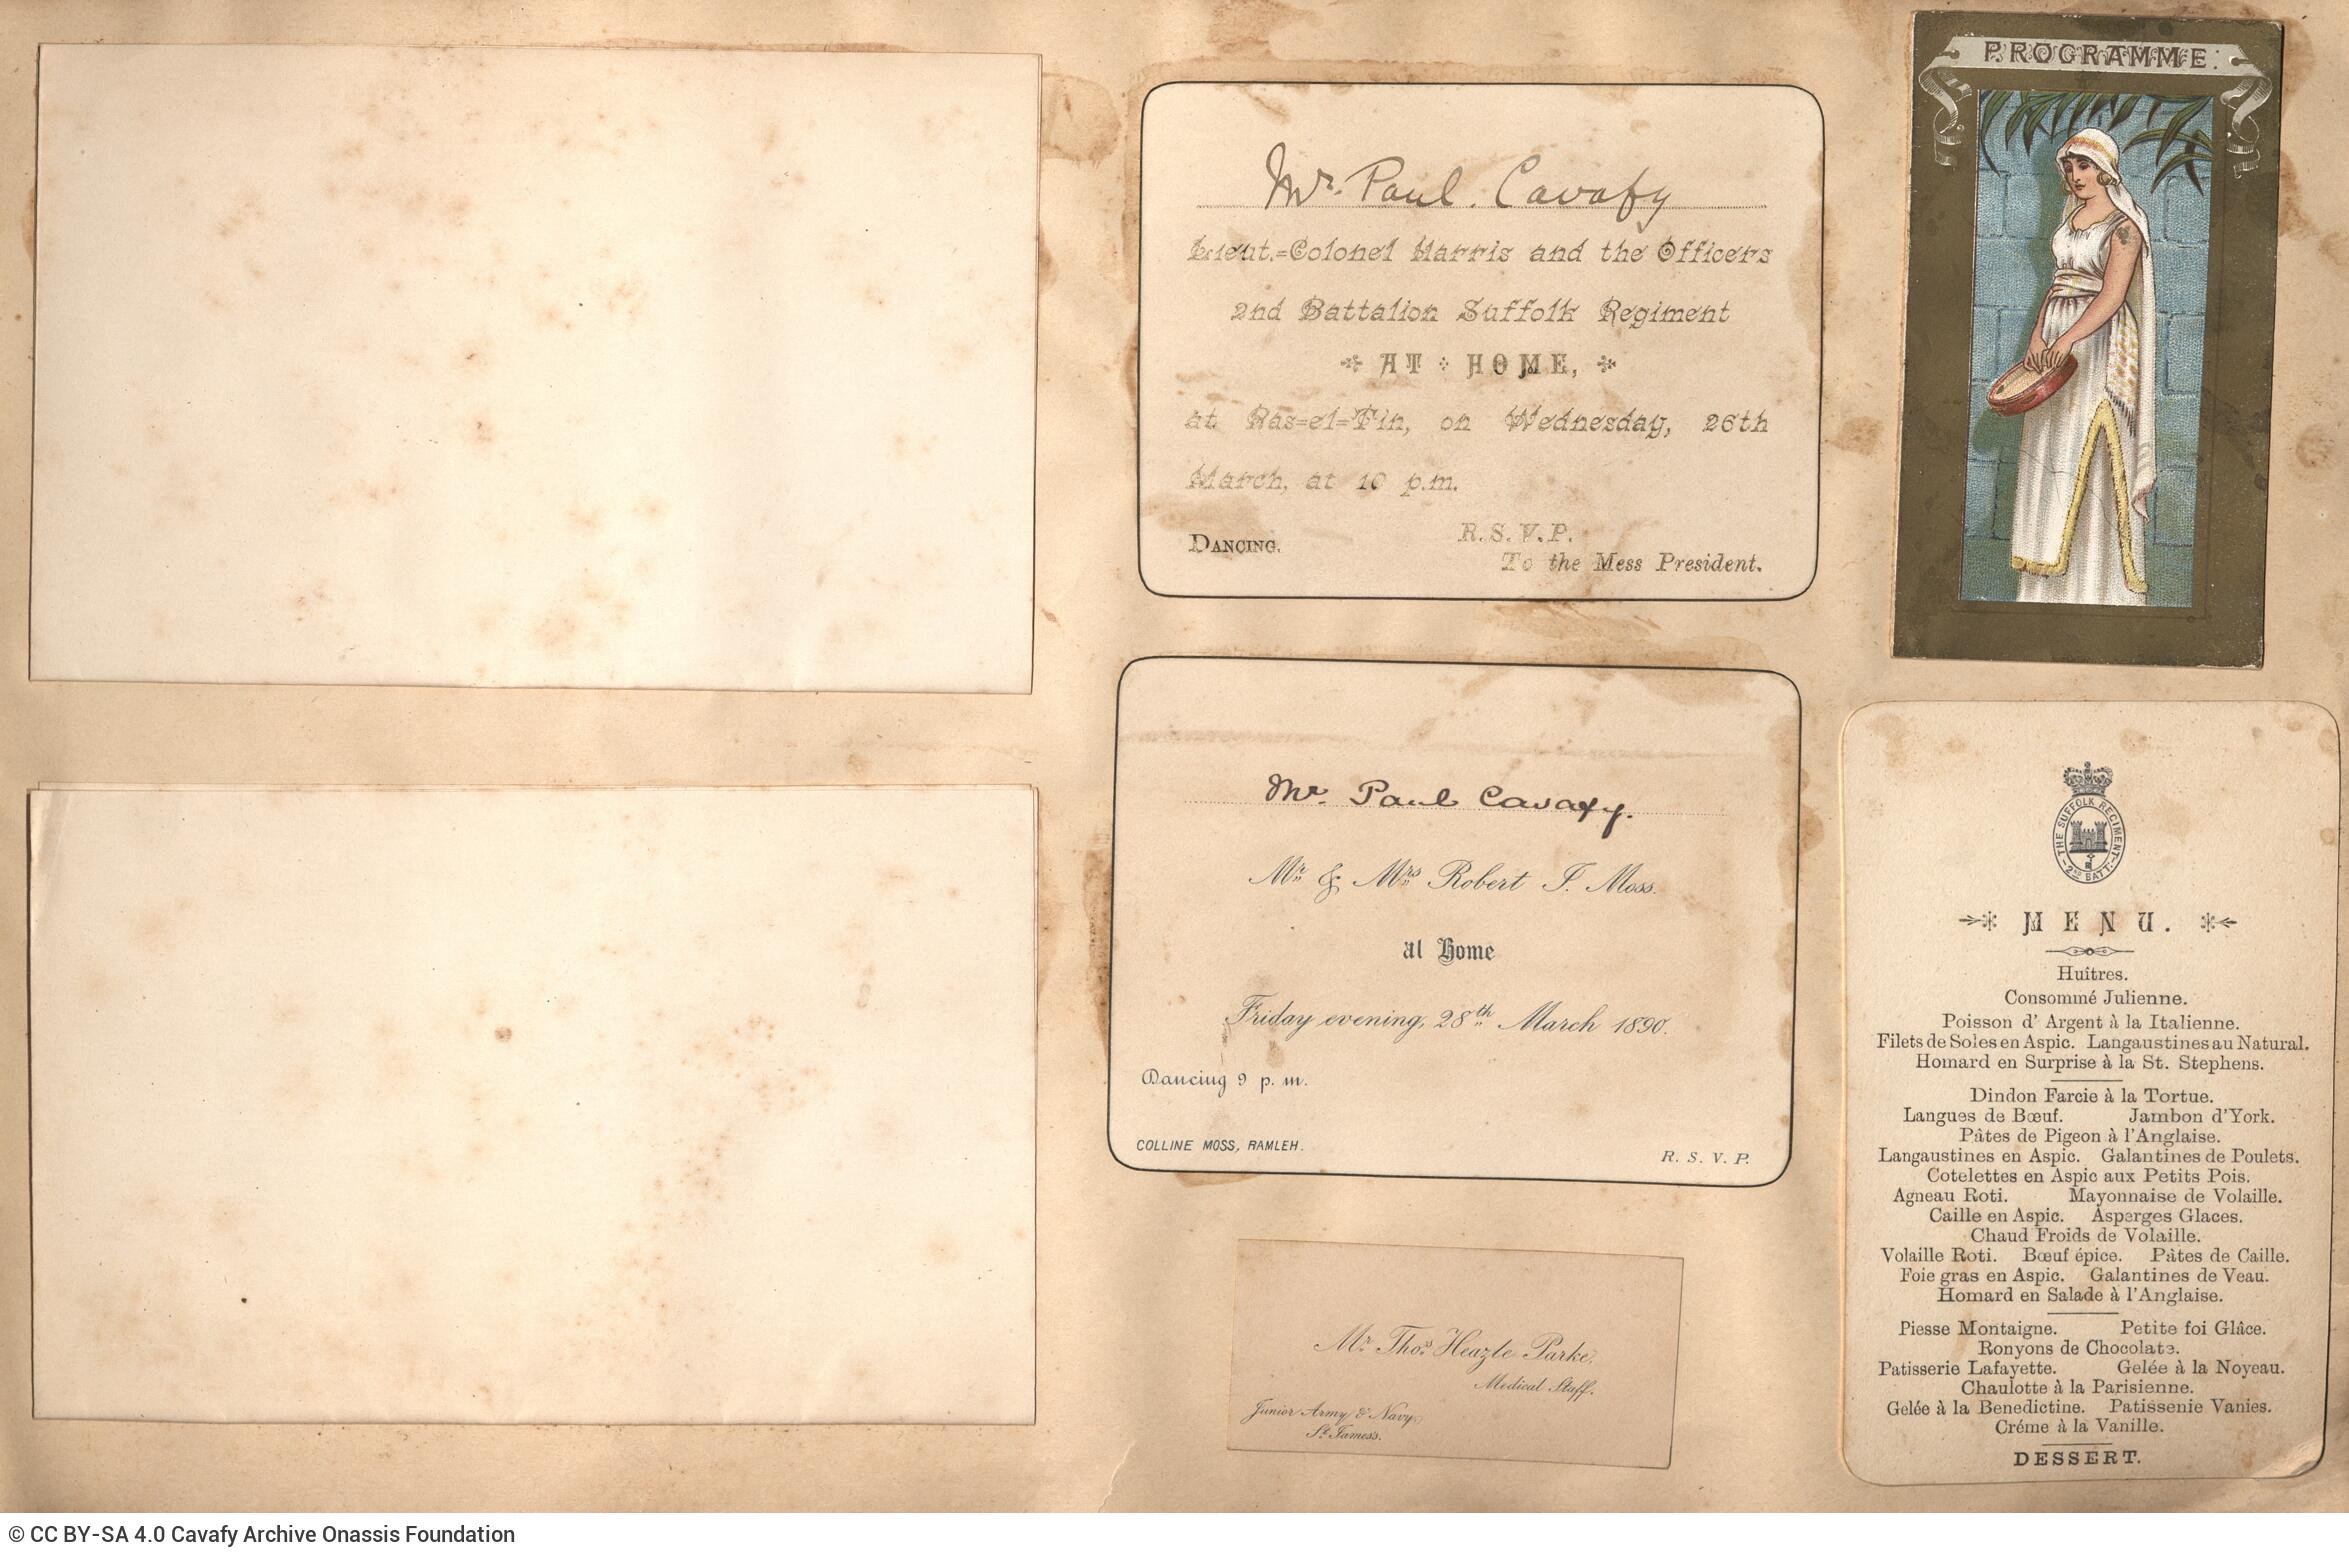 Mr. Paul. Cavafy
Lieut.=Colonel Harris and the Officers
2nd Battalion Suffolk Regiment
AT HOME,
at Ras=el=Tin, on Wednesday, 26th
March, at 10 p.m.
DANCING.
R. S. V. P.
To the Mess President.
Mr. Paul Cavafy.
Mr. & Mrs. Robert J. Moss.
at Home
Friday evening, 28th March 1890.
Dancing 9 p. m.
COLLINE MOSS, RAMLEH.
R. S. V. P.
Mr. Thos. Heazle Parke.
Medical Staff.
Junior Army & Navy,
St. James's.
PROGRAMME:
THE SUFFOLK REGIMENT
2ND BATT:
MENU.
Huîtres.
Consommé Julienne.
Poisson d' Argent à la Italienne.
Filets de Soles en Aspic. Langaustines au Natural.
Homard en Surprise à la St. Stephens.
Dindon Farcie à la Tortue.
Langues de Bœuf. Jambon d'York.
Pâtes de Pigeon à l'Anglaise.
Langaustines en Aspic. Galantines de Poulets.
Cotelettes en Aspic aux Petits Pois.
Agneau Roti. Mayonnaise de Volaille.
Caille en Aspic. Asperges Glaces.
Chaud Froids de Volaille.
Volaille Roti. Bœuf épice. Pâtes de Caille.
Foie gras en Aspic. Galantines de Veau.
Homard en Salade à l'Anglaise.
Piesse Montaigne. Petite foi Glâce.
Ronyons de Chocolate.
Patisserie Lafayette. Gelée à la Noyeau.
Chaulotte à la Parisienne.
Gelée à la Benedictine. Patissenie Vanies.
Créme à la Vanille.
DESSERT.
© CC BY-SA 4.0 Cavafy Archive Onassis Foundation